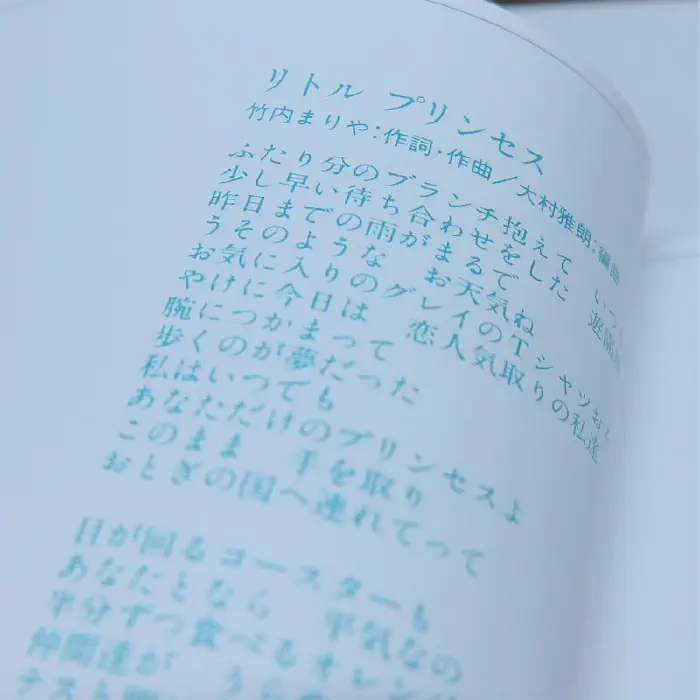 リトル プリンセス
竹内まりや:作詞・作曲/大村雅朗:編曲
ふたり分のブランチ抱えて いつ
少し早い待ち合わせをした 遊園
昨日までの雨がまるで
うそのような お天気ね
お気に入りのグレイのTシャツ
やけに今日は 恋人気取りの私達
腕につかまって
歩くのが夢だった
私はいつても
あなただけのプリンセスよ
このまま 手を取り
おとぎの国へ連れてって
目が回るコースターも
あなたとなら 平気なの
半分ずつ食べるオレン
仲間達が うら
テスト